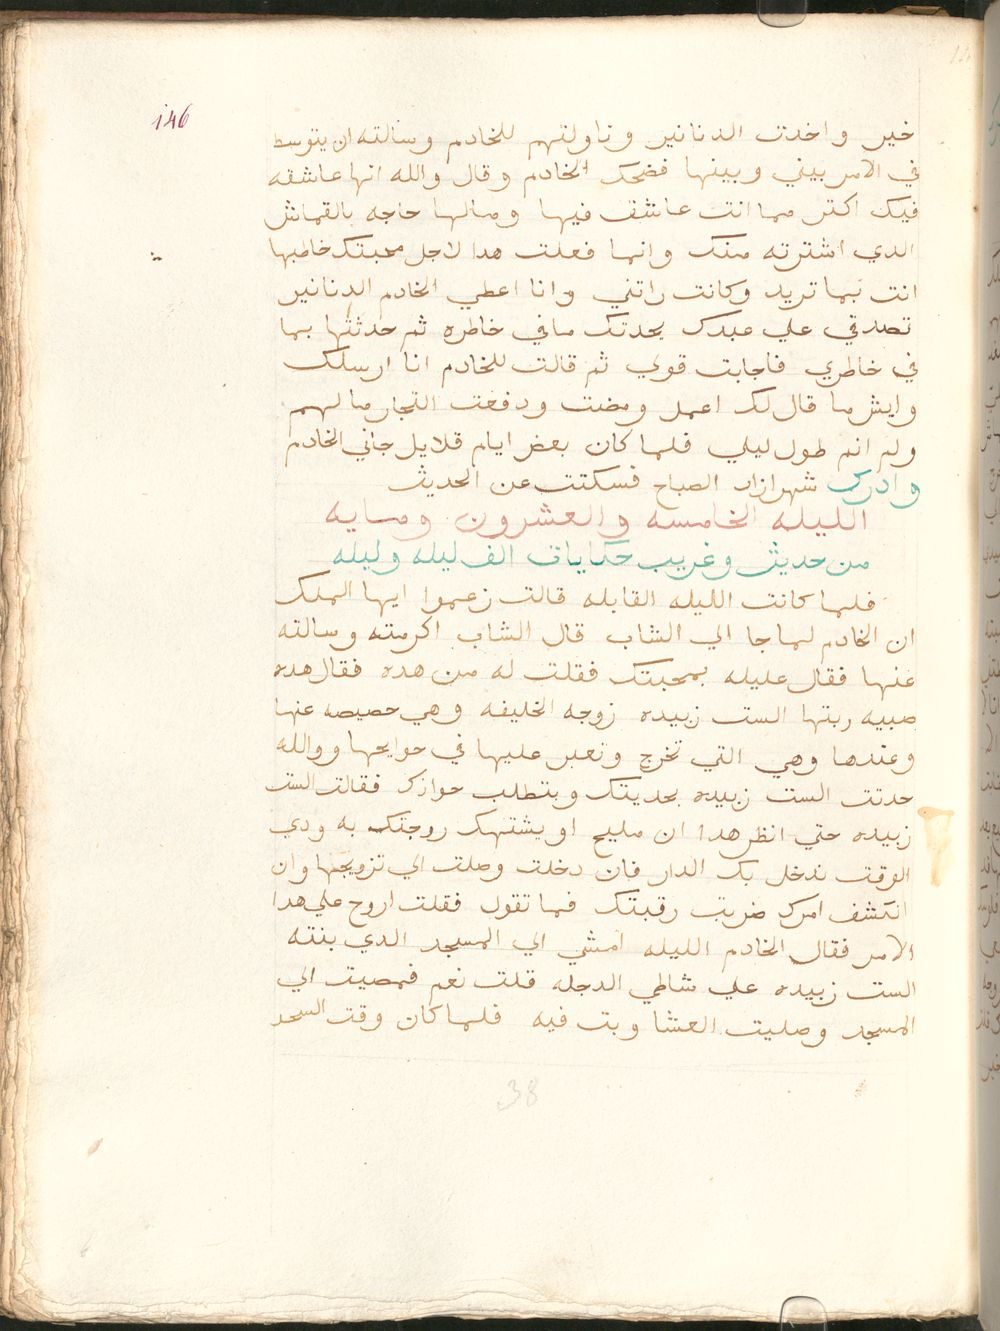 146
خير واخدت الدنانير وناولتهم للخادم وسالته ان يتوسط
في الامر بيني وبينها فضحك الخادم وقال والله انها عاشقه
فيك اكتر مما انت عاشق فيها وما لها حاجه بالقماش
الدي اشترته منك وانما فعلت هدا لاجل محبتك خاطبها
انت بما تريد وكانت راتني وانا اعطي الخادم الدنانير
تصدقي علي عبدك بحدتك ما في خاطره ثم حدثتها بما
في خاطري فاجابت قوي ثم قالت للخادم انا ارسلك
وايش ما قال لك اعمل ومضت ودفعت التجار ما لهم
ولم انم طول ليلي فلما كان بعض ايام قلايل جاني الخادم
وادرك شهرازاد الصباح فسكتت عن الحديث
الليله الخامسه والعشرون ومايه
من حديث وغريب حكايات الف ليله وليله
فلما كانت الليله القابله قالت زعموا ايها الملك
ان الخادم لما جا الي الشاب قال الشاب اكرمته وسالته
عنها فقال عليله بمحبتك فقلت له من هده فقال هده
صبيه ربتها الست زبيده زوجه الخليفه وهي حصيصه عنها
وعندها وهي التي تخرج وتعبر عليها في حوايجها ووالله
حدتت الست زبيده بحديتك وبتطلب جوازك فقالت الست
زبيده حتي انظر هدا ان مليح او يشتهك زوجتك به ودي
الوقت ندخل بك الدار فان دخلت وصلت الي تزويجها وان
انكشف امرك ضربت رقبتك فما تقول فقلت اروح علي هدا
الامر فقال الخادم الليله امشي الي المسجد الدي بنته
الست زبيده علي شاطي الدجله قلت نعم فمضيت الي
المسجد وصليت العشا وبت فيه فلما كان وقت السحر
38